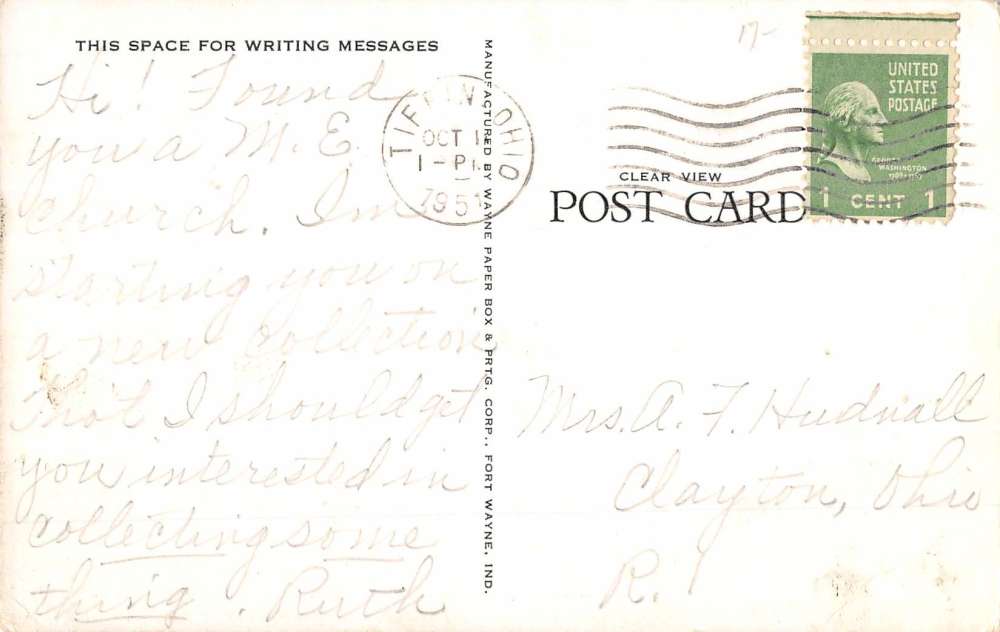 THIS SPACE FOR WRITING MESSAGES
Hi! Found
you a M. E.
Church. Im
starting you on
a new collection
that I should get
you interested in
collecting some
thing. Ruth
MANUFACTURED BY WAYNE PAPER BOX & PRTG. CORP., FORT WAYNE, IND.
17-
TIFFIN OHIO
OCT
1-P
1951
UNITED
STATES
POSTAGE
GEORGE
WASHINGTON
1 CENT 1
CLEAR VIEW
POST CARD
Mrs. A. F. Hudnall
Clayton, Ohio
R.